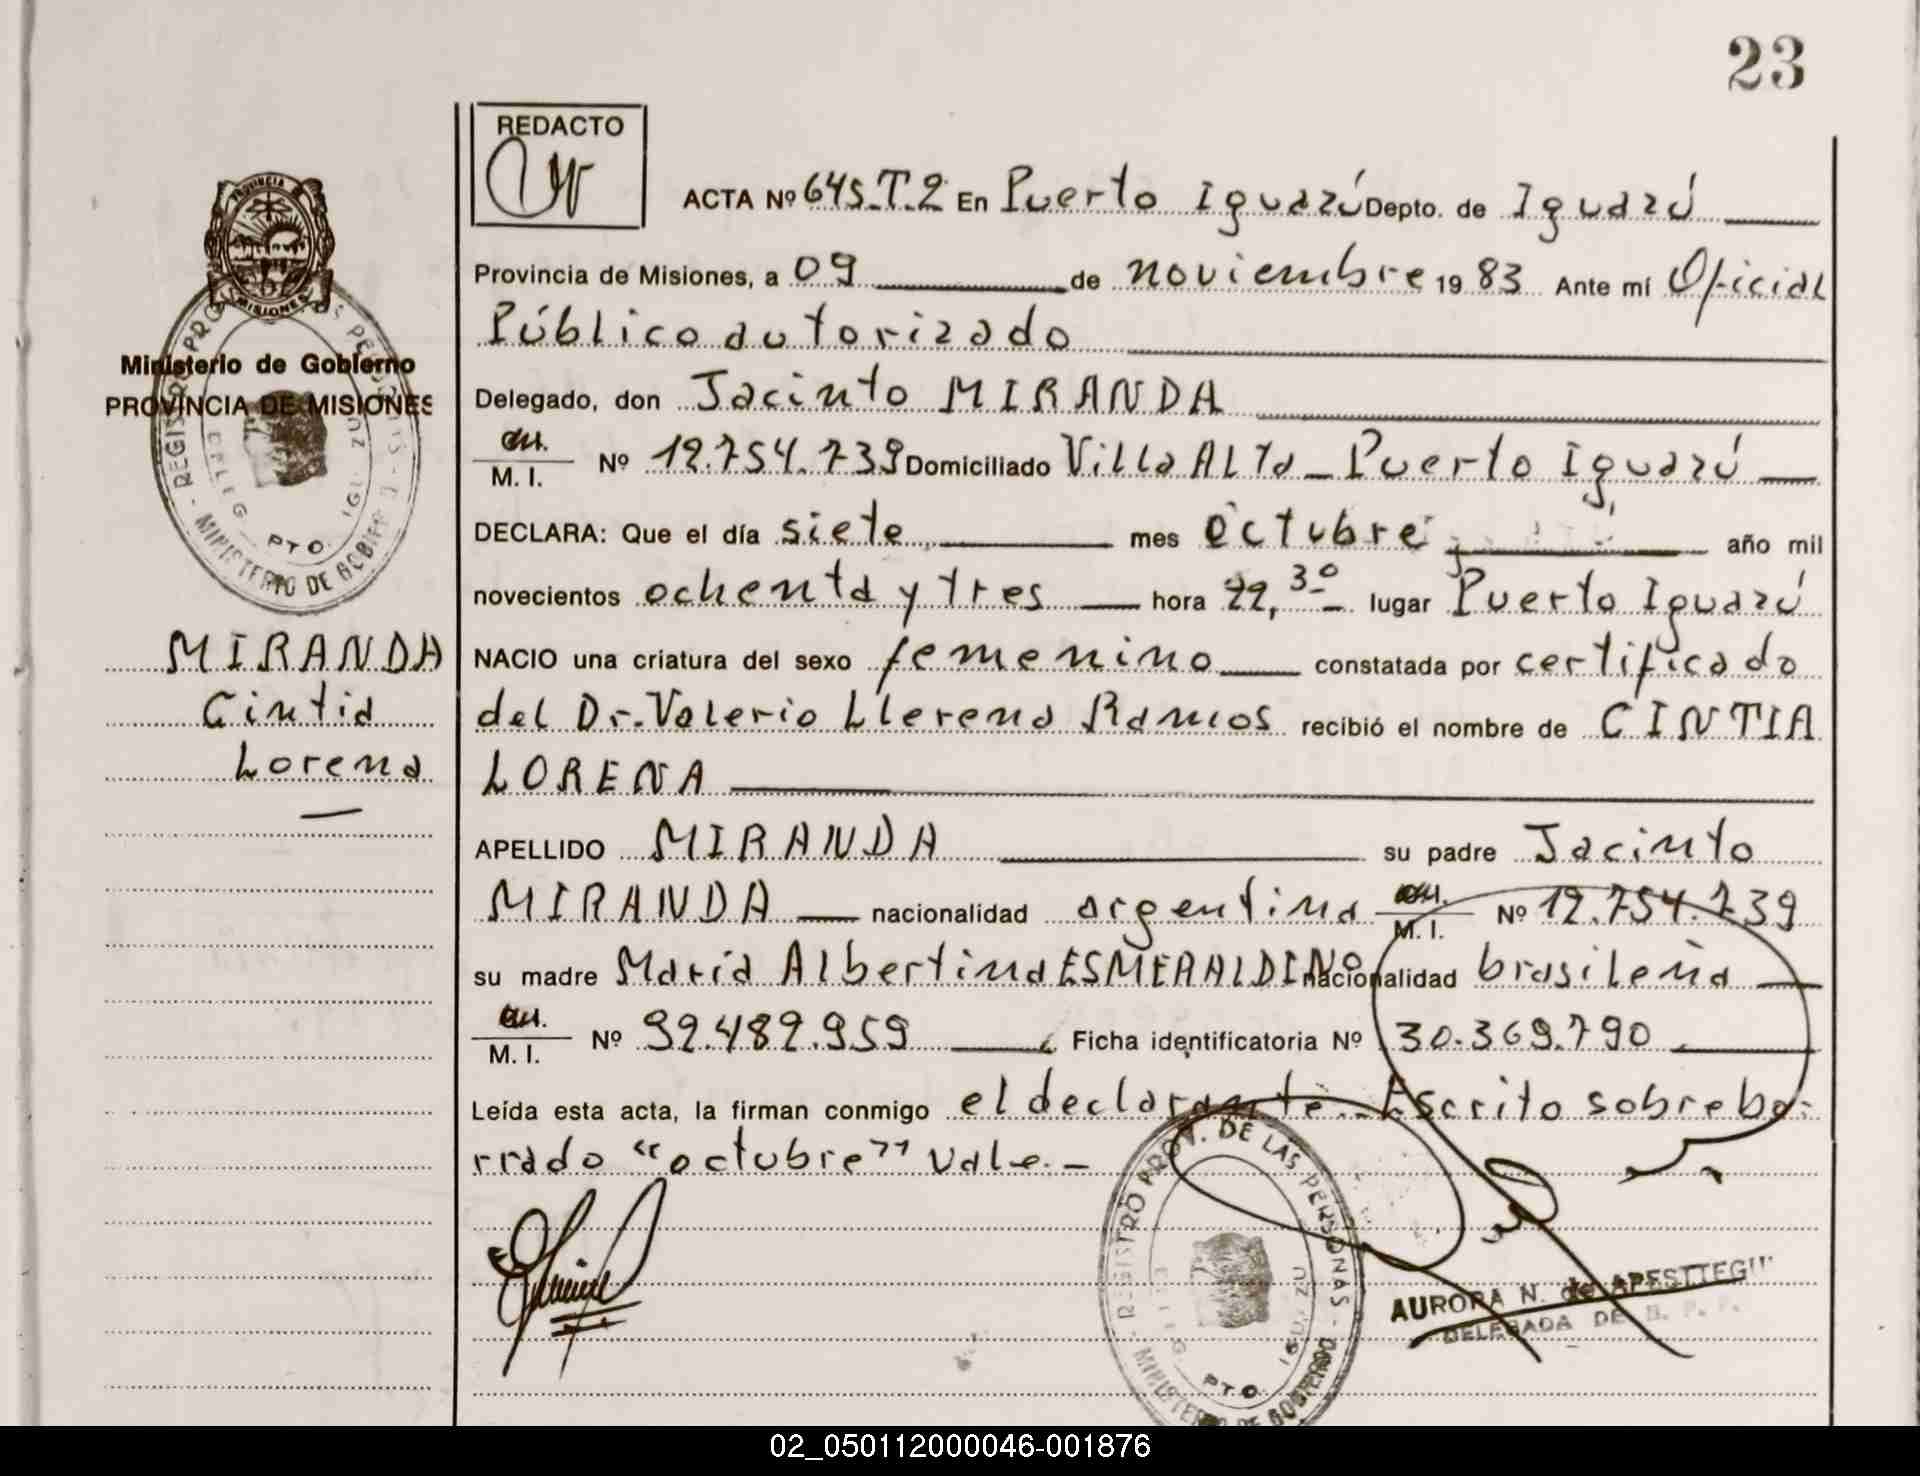 23
REDACTO
ACTA Nº 645.T.2 En Puerto Iguazú Depto. de Iguazú
Provincia de Misiones, a 09 de noviembre 19 83 Ante mí Oficial
Público autorizado
Delegado, don Jacinto MIRANDA
M. I. Nº 12.754.739 Domiciliado Villa ALTA - Puerto Iguazú
DECLARA: Que el día siete mes octubre año mil
novecientos ochenta y tres hora 22,30 lugar Puerto Iguazú
NACIO una criatura del sexo femenino constatada por certificado
del Dr. Valerio Llerena Ramos recibió el nombre de CINTIA
LORENA
APELLIDO MIRANDA su padre Jacinto
MIRANDA nacionalidad argentina M. I. Nº 12.754.739
su madre María Albertina ESMERALDINO nacionalidad brasileña
M. I. Nº 92.482.959 Ficha identificatoria Nº 30.369.790
Leída esta acta, la firman conmigo el declarante.- Escrito sobre bo-
rrado “octubre” vale.-
PROVINCIA DE MISIONES
Ministerio de Gobierno
PROVINCIA DE MISIONES
MIRANDA
Cintia
Lorena
REGISTRO PROV. DE LAS PERSONAS - MINISTERIO DE GOBIERNO
PTO.
AURORA N. de APESTTEGUI
DELEGADA DE R. P. P.
02_050112000046-001876